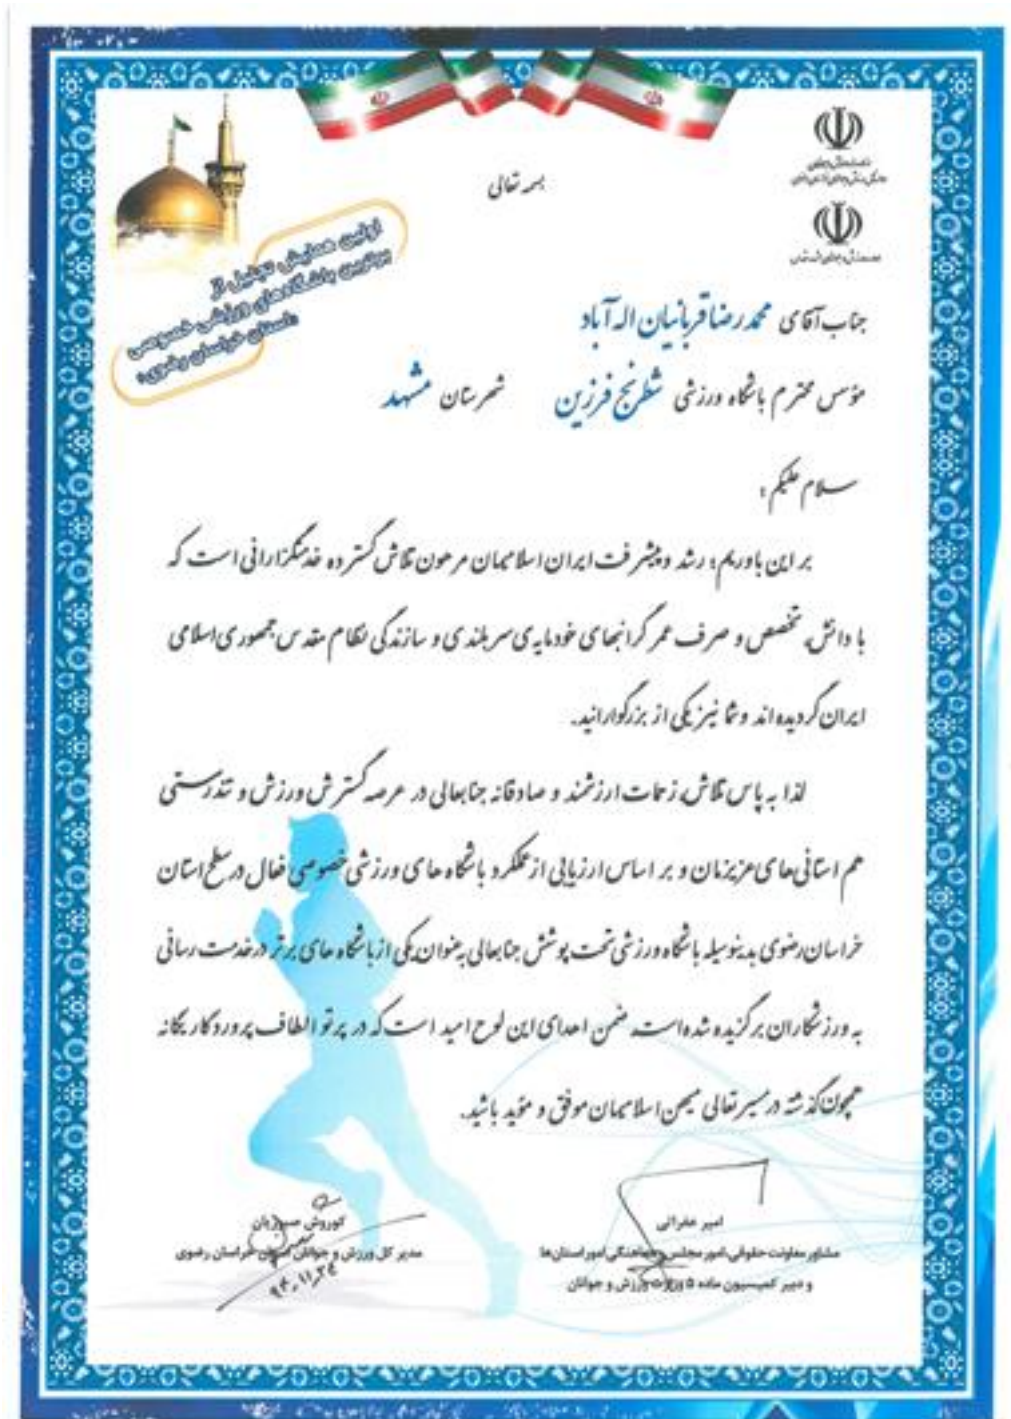 بسمه تعالی
وزارت ورزش و جوانان
اولین همایش تجلیل از
برترین باشگاه‌های ورزشی خصوصی
«استان خراسان رضوی»
جناب آقای محمدرضا قربانیان اله آباد
مؤسس محترم باشگاه ورزشی شطرنج فرزین شهرستان مشهد
سلام علیکم ؛
بر این باوریم، رشد و پیشرفت ایران اسلامیمان مرهون تلاش گسترده خدمتگزارانی است که
با دانش، تخصص و صرف عمر گرانبهای خود مایه ی سربلندی و سازندگی نظام مقدس جمهوری اسلامی
ایران گردیده اند و شما نیز یکی از بزرگوارانید.
لذا به پاس تلاش، زحمات ارزشمند و صادقانه جنابعالی در عرصه گسترش ورزش و تندرستی
هم استانی های عزیزمان و بر اساس ارزیابی از عملکرد باشگاه های ورزشی خصوصی فعال در سطح استان
خراسان رضوی بدینوسیله باشگاه ورزشی تحت پوشش جنابعالی بعنوان یکی از باشگاه های برتر در خدمت رسانی
به ورزشکاران برگزیده شده است. ضمن اهدای این لوح امید است که در پرتو الطاف پروردگار یگانه
همچون گذشته در مسیر تعالی میهن اسلامیمان موفق و مؤید باشید.
امیر عفراتی
مشاور معاونت حقوقی، امور مجلس و هماهنگی امور استان‌ها
و دبیر کمیسیون ماده ۵ وزارت ورزش و جوانان
کوروش
مدیر کل ورزش و جوانان استان خراسان رضوی
۹۴،۱۱،۲۴